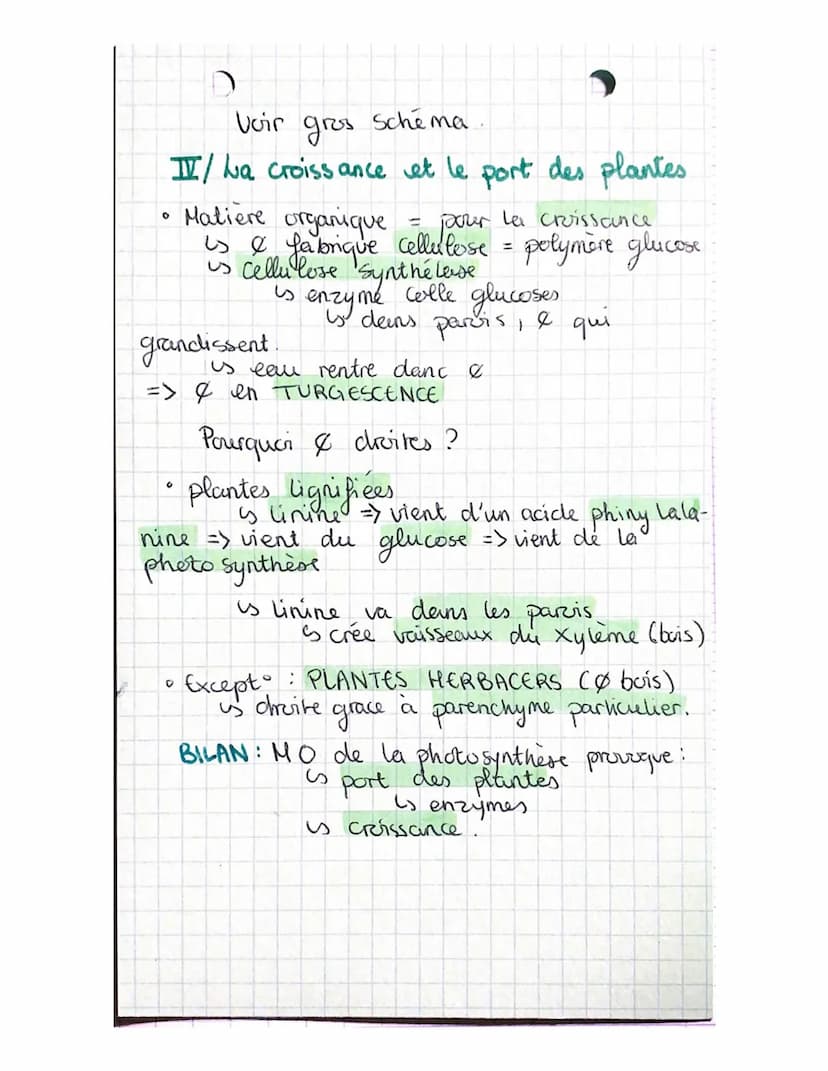 Voir gros schéma.
IV/ La croissance et le port des plantes
• Matière organique = pour la croissance
↳ ₡ fabrique cellulose = polymère glucose
↳ cellulose synthétase
↳ enzyme colle glucoses
↳ dans parois, ₡ qui
grandissent.
↳ eau rentre danc ₡
=> ₡ en TURGESCENCE
Pourquoi ₡ droites ?
• plantes lignifiées
↳ linine => vient d'un acide phinylala-
nine => vient du glucose => vient de la
photosynthèse
↳ linine va dans les parois
↳ crée vaisseaux du xylème (bois)
• Except° : PLANTES HERBACERS (Ø bois)
↳ droite grace à parenchyme particulier.
BILAN : MO de la photosynthèse provoque :
↳ port des plantes
↳ enzymes
↳ croissance.